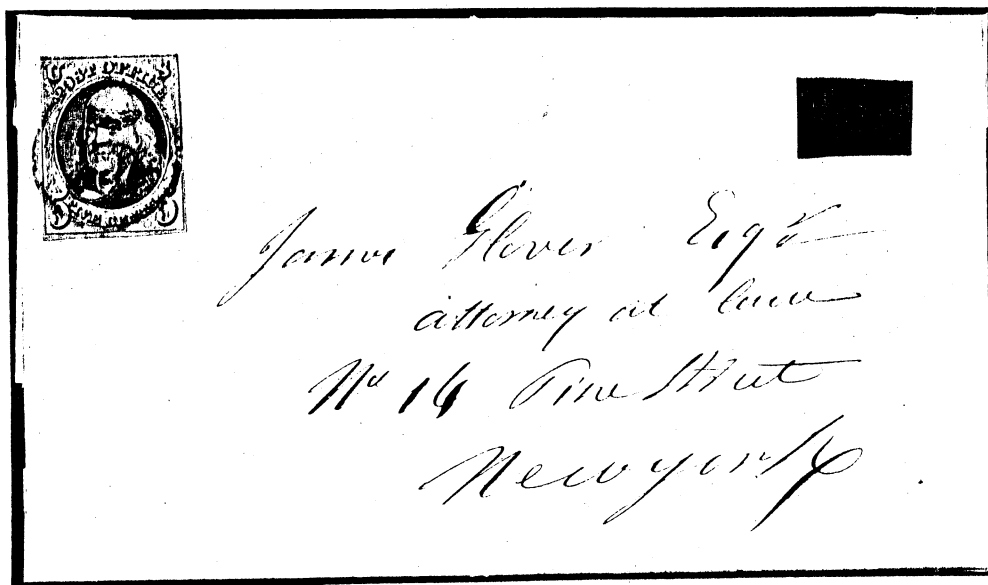 POST OFFICE
FIVE CENTS
James Glover Esqr
attorney at law
No 16 Pine Street
New york